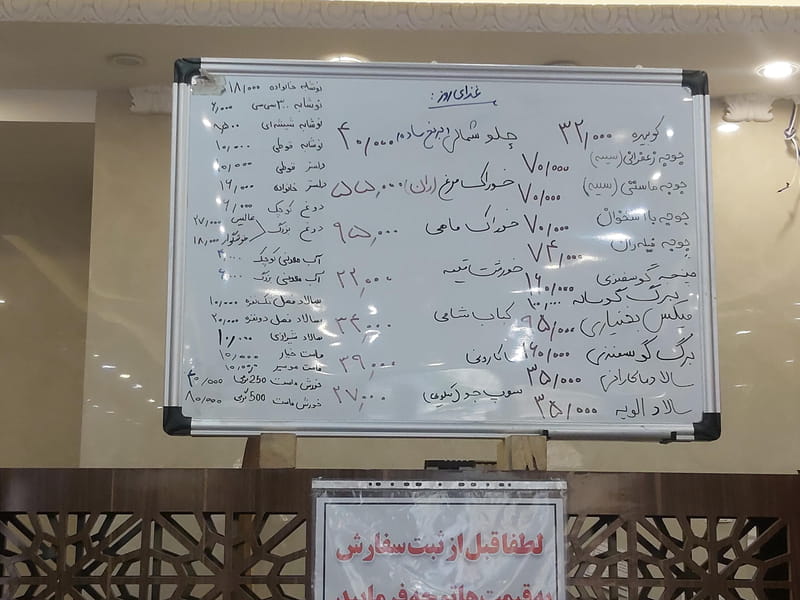 غذای روز:
کوبیده ۳۲,۰۰۰
جوجه زعفرانی (سینه) ۷۰,۰۰۰
جوجه ماستی (سینه) ۷۰,۰۰۰
جوجه بااستخوان ۷۰,۰۰۰
جوجه فیله ران ۷۴,۰۰۰
گوسفندی ۱۶۰,۰۰۰
برگ گوساله
میکس بختیاری ۹۵,۰۰۰
برگ گوسفندی ۱۶۰,۰۰۰
سالاد ماکارانی ۳۵,۰۰۰
سالاد الویه ۳۵,۰۰۰
چلو شمالی ۴۰,۰۰۰
خوراک مرغ (ران) ۵۵,۰۰۰
خوراک ماهی ۹۵,۰۰۰
خورشت قیمه ۲۲,۰۰۰
کباب شامی ۳۴,۰۰۰
۳۹,۰۰۰
سوپ جو ۲۷,۰۰۰
نوشابه خانواده ۱۸,۰۰۰
نوشابه ۳۰۰ سی سی
نوشابه شیشه ای
نوشابه قوطی ۱۰,۰۰۰
دلستر قوطی ۱۰,۰۰۰
دلستر خانواده ۱۶,۰۰۰
دوغ کوچک ۶,۰۰۰
دوغ بزرگ عالیس ۲۷,۰۰۰
خوشگوار ۱۸,۰۰۰
آب معدنی کوچک
آب معدنی بزرگ
سالاد فصل تک نفره ۱۰,۰۰۰
سالاد فصل دو نفره ۲۰,۰۰۰
سالاد شیرازی ۱۰,۰۰۰
ماست خیار ۱۰,۰۰۰
ماست موسیر
خورش ماست 250 گرمی ۴۰,۰۰۰
خورش ماست 500 گرمی ۸۰,۰۰۰
لطفا قبل از ثبت سفارش
به قیمت ها توجه فرمایید